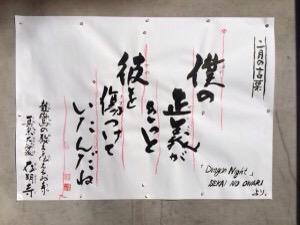 二月の言葉
僕の
正義が
きっと
彼を
傷つけて
いたんだね
「Dragon Night」
SEKAI NO OWARI
より。